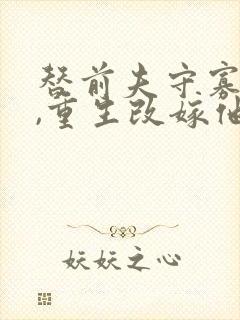 替前夫守寡
,重生改嫁他
妖妖之心